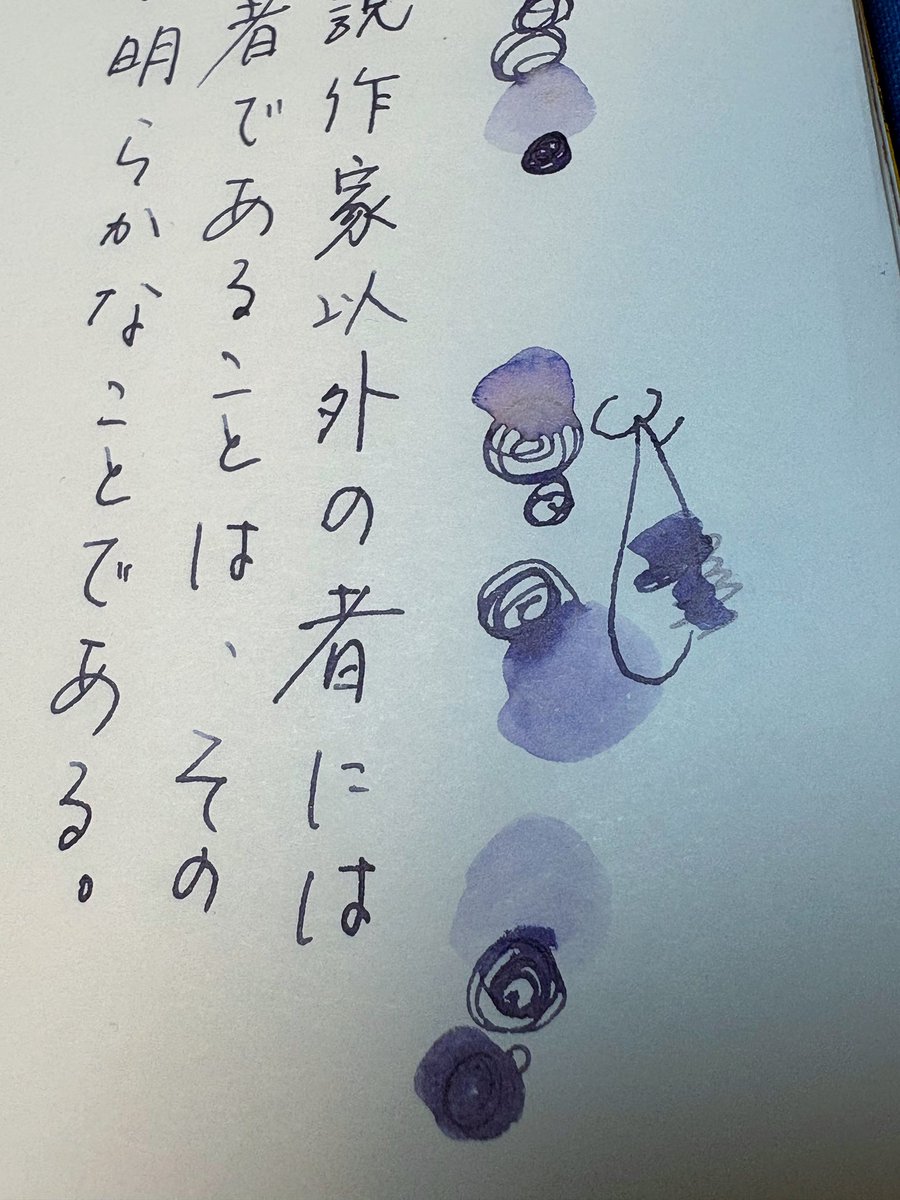 説作家以外の者には
者であることは、その
明らかなことである。